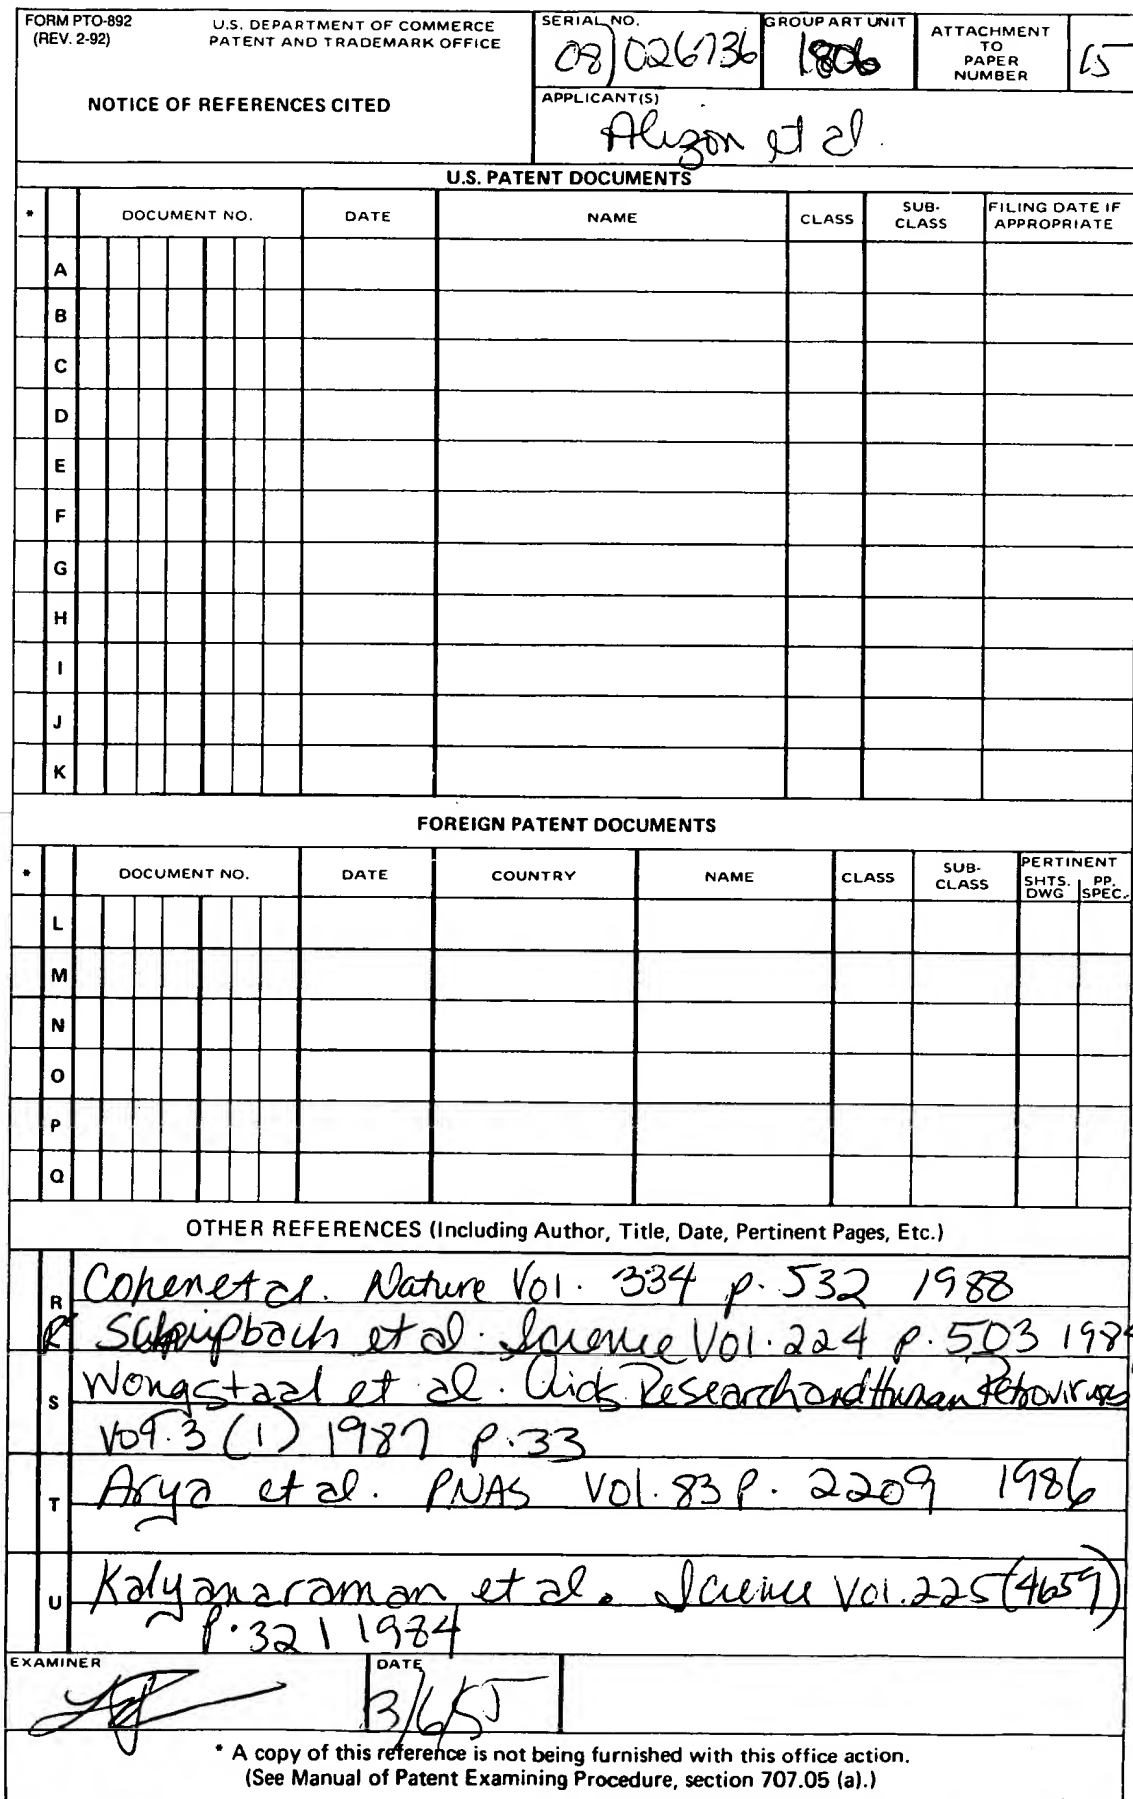 FORM PTO-892
(REV. 2-92)
U.S. DEPARTMENT OF COMMERCE
PATENT AND TRADEMARK OFFICE
NOTICE OF REFERENCES CITED
SERIAL NO.
08/026736
GROUP ART UNIT
1806
ATTACHMENT
TO
PAPER
NUMBER
15
APPLICANT(S)
Alizon et al.
U.S. PATENT DOCUMENTS
* DOCUMENT NO. DATE NAME CLASS SUB-
CLASS FILING DATE IF
APPROPRIATE
A
B
C
D
E
F
G
H
I
J
K
FOREIGN PATENT DOCUMENTS
* DOCUMENT NO. DATE COUNTRY NAME CLASS SUB-
CLASS PERTINENT
SHTS. PP.
DWG SPEC.
L
M
N
O
P
Q
OTHER REFERENCES (Including Author, Title, Date, Pertinent Pages, Etc.)
R Cohen et al. Nature Vol. 334 p. 532 1988
R' Schüpbach et al. Science Vol. 224 p. 503 1984
S Wongstaal et al. Aids Research and Human Retroviruses
Vol. 3 (1) 1987 p. 33
T Arya et al. PNAS Vol. 83 p. 2209 1986
U Kalyanaraman et al. Science Vol. 225 (4659)
p. 321 1984
EXAMINER
DATE
3/6/95
* A copy of this reference is not being furnished with this office action.
(See Manual of Patent Examining Procedure, section 707.05 (a).)